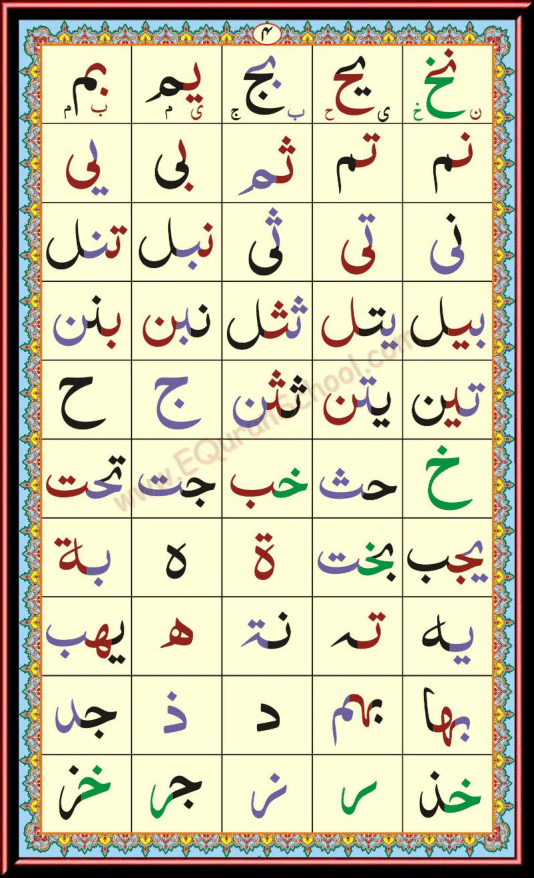 ۴
نخ یح بج یم بم
ن خ ی ح ب ج ی م ب م
نم تم ثم بی یی
نی تی ثی نبل تنل
بیل یتل ثثل نبن بنن
تین یتن ثثن ج ح
خ حث خب جت تحت
یجب بخت ة ه بة
یه ته نة ھ یهب
بها بهم د ذ جد
خذ ر نر جر خز
www.EQuranSchool.com